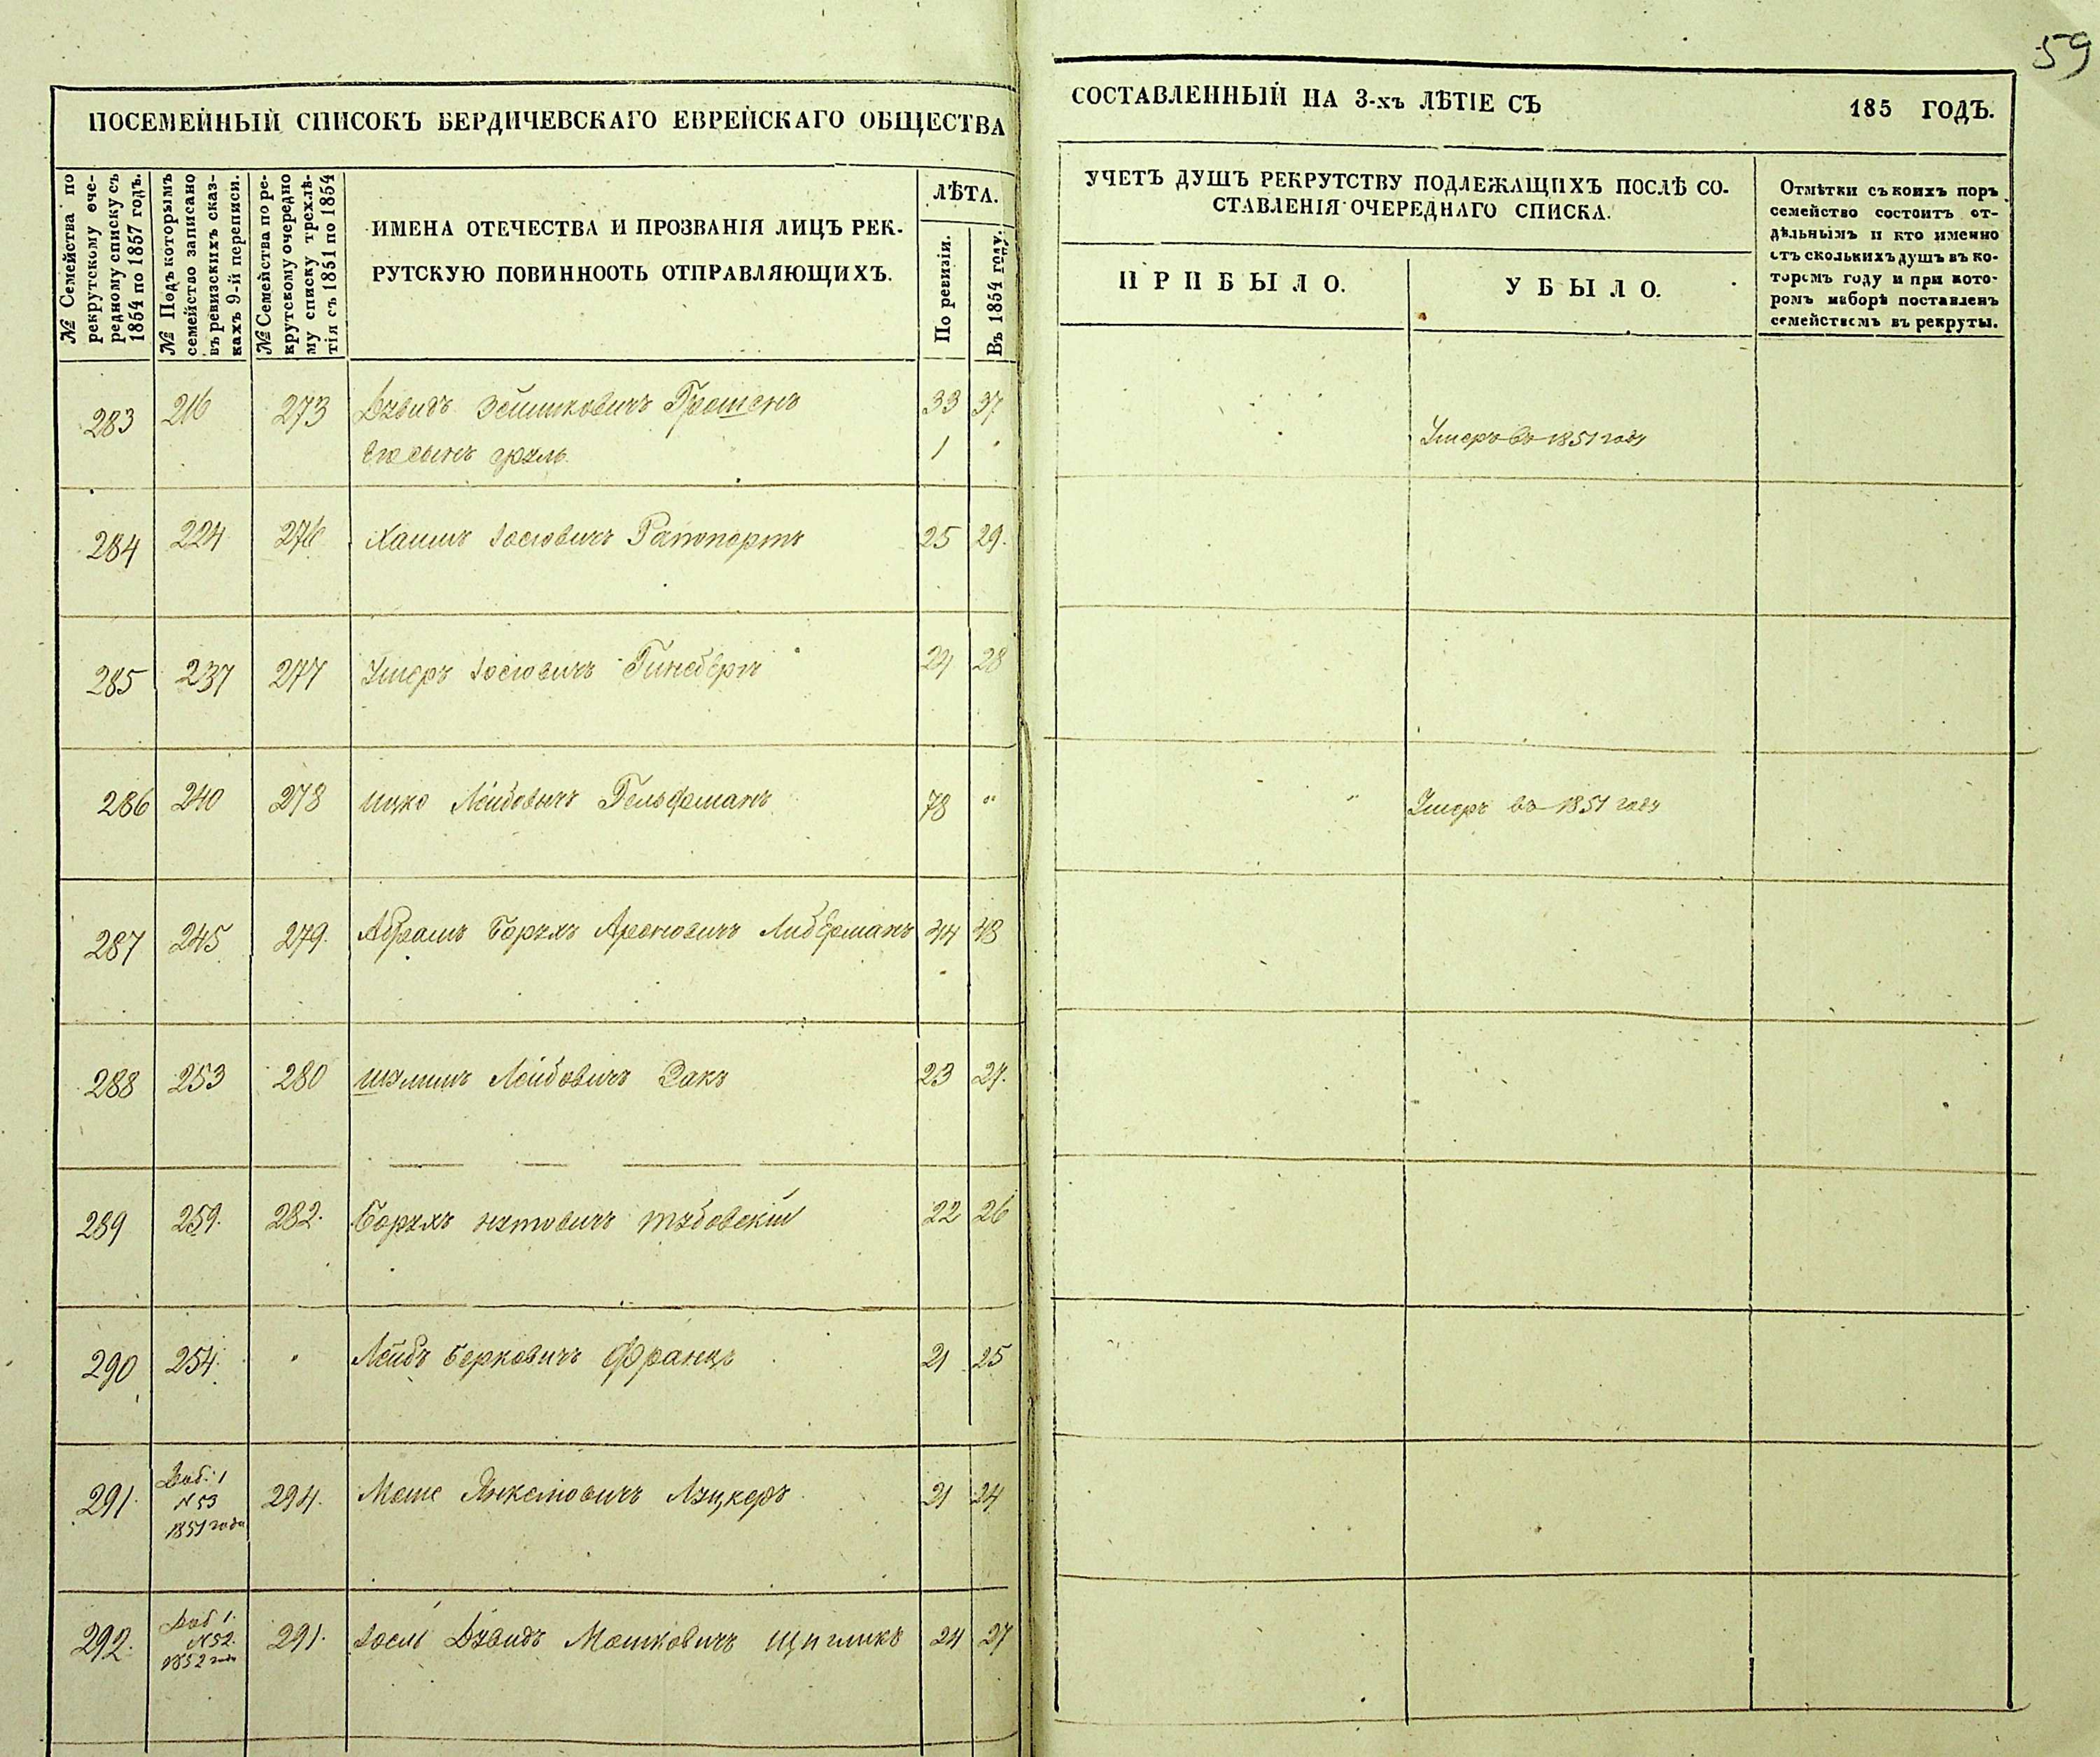 59
ПОСЕМЕЙНЫЙ СПИСОКЪ БЕРДИЧЕВСКАГО ЕВРЕЙСКАГО ОБЩЕСТВА
СОСТАВЛЕННЫЙ НА 3-хъ ЛѢТІЕ СЪ 185 ГОДЪ.
№ Семейства по
рекрутскому оче-
редному списку съ
1854 по 1857 годъ.
№ Подъ которымъ
семейство записано
въ ревизскихъ сказ-
кахъ 9-й переписи.
№ Семейства по ре-
крутскому очередно
му списку трехлѣ-
тія съ 1851 по 1854
ИМЕНА ОТЕЧЕСТВА И ПРОЗВАНІЯ ЛИЦЪ РЕК-
РУТСКУЮ ПОВИННООТЬ ОТПРАВЛЯЮЩИХЪ.
ЛѢТА.
По ревизіи.
Въ 1854 году.
УЧЕТЪ ДУШЪ РЕКРУТСТВУ ПОДЛЕЖАЩИХЪ ПОСЛѢ СО-
СТАВЛЕНІЯ ОЧЕРЕДНАГО СПИСКА.
ПРИБЫЛО.
УБЫЛО.
Отмѣтки съ коихъ поръ
семейство состоитъ от-
дѣльнымъ и кто именно
стъ сколькихъ душъ въ ко-
торомъ году и при кото-
ромъ наборѣ поставленъ
семействемъ въ рекруты.
283 216 273 Дувидъ Зейликовичъ 33 37
Его сынъ 1 Умеръ въ 1851 году
284 224 276 Хаимъ Іосіовичъ Рапопортъ 25 29.
285 237 277 Ушеръ Іосіовичъ Гинсбергъ 24 28
286 240 278 Ицко Лейбовичъ Гельфманъ 78 " " Умеръ въ 1851 году
287 245 279. Абрамъ Борухъ Ароновичъ Либерманъ 44 48
288 253 280 Шулимъ Лейбовичъ Закъ 23 27.
289 259. 282. Борухъ Нутовичъ 22 26
290 254. " Лейбъ Берковичъ Францъ 21 25
291. Доб. 1
N 53
1851 года 294. Моше Янкелювичъ Луцкеръ 21 24
292. Доб 1.
N 52.
1852 года 291. Іосль Дувидъ Мошковичъ Щигликъ 24 27